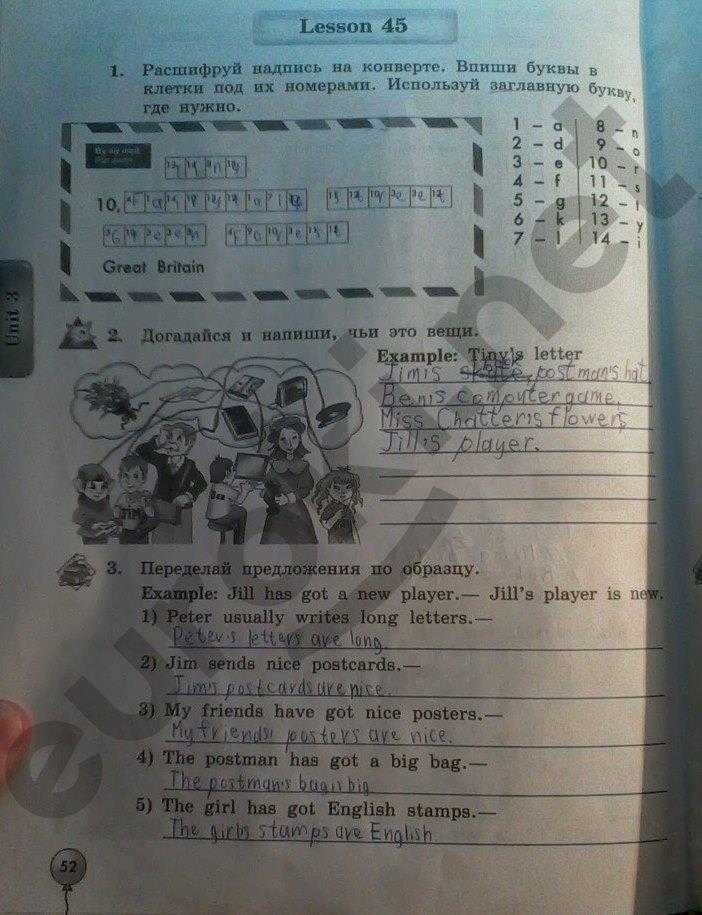 Lesson 45
1. Расшифруй надпись на конверте. Впиши буквы в
клетки под их номерами. Используй заглавную букву,
где нужно.
1 – a 8 – n
2 – d 9 – o
3 – e 10 – r
4 – f 11 – s
5 – g 12 – t
6 – k 13 – y
7 – l 14 – i
By air mail
Par avion
10,
Great Britain
Unit 3
2. Догадайся и напиши, чьи это вещи.
Example: Tiny's letter
Jim's postman's hat
Ben's computer game.
Miss Chatter's flowers
Jill's player.
TIM
Ben
3. Переделай предложения по образцу.
Example: Jill has got a new player.— Jill's player is new.
1) Peter usually writes long letters.—
Peter's letters are long
2) Jim sends nice postcards.—
Jim's postcards are nice.
3) My friends have got nice posters.—
My friends' posters are nice.
4) The postman has got a big bag.—
The postman's bag is big
5) The girl has got English stamps.—
The girl's stamps are English
52
eurokinet